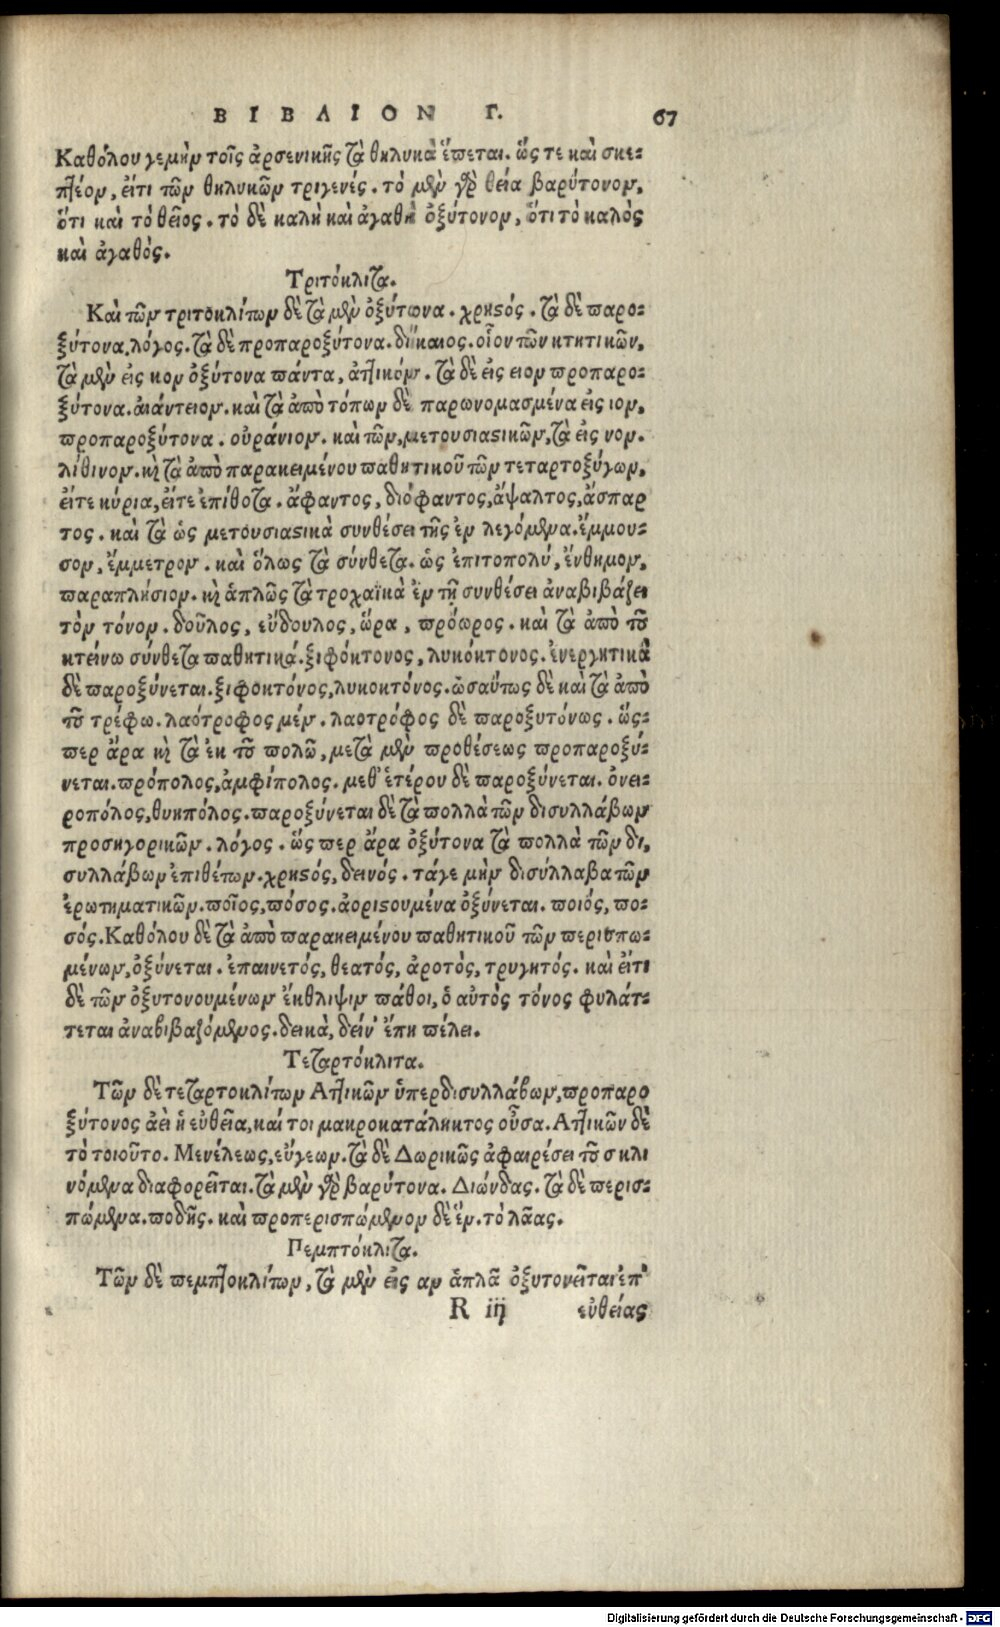 ΒΙΒΛΙΟΝ Γ. 67
Καθόλου γεμὴν τοῖς ἀρσενικῆς τὰ θηλυκὰ ἕπεται. ὥς τε καὶ σκε-
πτέον, εἴτι τῶν θηλυκῶν τριγενές. τὸ μὲν γὰρ θεία βαρύτονον,
ὅτι καὶ τὸ θεῖος. τὸ δὲ καλὴ καὶ ἀγαθὴ ὀξύτονον, ὅτι τὸ καλὸς
καὶ ἀγαθὸς.
Τριτόκλιτα.
Καὶ τῶν τριτοκλίτων δὲ τὰ μὲν ὀξύτωνα. χρηστός. τὰ δὲ παρο-
ξύτονα, λόγος. τὰ δὲ προπαροξύτονα. δίκαιος. οἷον τῶν κτητικῶν,
τὰ μὲν εἰς κον ὀξύτονα πάντα, ἀττικόν. τὰ δὲ εἰς ειον προπαρο-
ξύτονα. αἰάντειον. καὶ τὰ ἀπὸ τόπων δὲ παρωνομασμένα εἰς ιον,
προπαροξύτονα. οὐράνιον. καὶ τῶν, μετουσιαστικῶν, τὰ εἰς νον.
λίθινον. καὶ τὰ ἀπὸ παρακειμένου παθητικοῦ τῶν τεταρτοξύγων,
εἴτε κύρια, εἴτε ἐπίθοτα. ἄφαντος, διόφαντος, ἄψαλτος, ἄσπαρ
τος. καὶ τὰ ὡς μετουσιαστικὰ συνθέσει τῆς ἐν λεγόμενα. ἔμμου-
σον, ἔμμετρον. καὶ ὅλως τὰ σύνθετα. ὡς ἐπιτοπολύ, ἔνθημον,
παραπλήσιον. καὶ ἁπλῶς τὰ τροχαϊκὰ ἐν τῇ συνθέσει ἀναβιβάζει
τὸν τόνον. δοῦλος, εὔδουλος, ὥρα, πρόωρος. καὶ τὰ ἀπὸ τοῦ
κτείνω σύνθετα παθητικά. ξιφόκτονος, λυκόκτονος. ἐνεργητικὰ
δὲ παροξύνεται. ξιφοκτόνος, λυκοκτόνος. ὡσαύτως δὲ καὶ τὰ ἀπὸ
τοῦ τρέφω. λαότροφος μέν. λαοτρόφος δὲ παροξυτόνως. ὥς-
περ ἄρα καὶ τὰ ἐκ τοῦ πολῶ, μετὰ μὲν προθέσεως προπαροξύ-
νεται. πρόπολος, ἀμφίπολος. μεθ' ἑτέρου δὲ παροξύνεται. ὀνει-
ροπόλος, θυηπόλος. παροξύνεται δὲ τὰ πολλὰ τῶν δισυλλάβων
προσηγορικῶν. λόγος. ὥς περ ἄρα ὀξύτονα τὰ πολλὰ τῶν δι,
συλλάβων ἐπιθέτων. χρηστός, δεινός. τάγε μὴν δισύλλαβα τῶν
ἐρωτηματικῶν. ποῖος, πόσος. ἀοριστουμένα ὀξύνεται. ποιός, πο-
σός. Καθόλου δὲ τὰ ἀπὸ παρακειμένου παθητικοῦ τῶν περισπω-
μένων, ὀξύνεται. ἐπαινετός, θεατός, ἀροτὸς, τρυγητός. καὶ εἴτι
δὲ τῶν ὀξυτονουμένων ἔκθλιψιν πάθοι, ὁ αὐτὸς τόνος φυλάτ-
τεται ἀναβιβαζόμενος. δεινὰ, δείν' ἔπη πέλει.
Τεταρτόκλιτα.
Τῶν δὲ τεταρτοκλίτων Ἀττικῶν ὑπερδισυλλάβων, προπαρο
ξύτονος ἀεὶ ἡ εὐθεῖα, καί τοι μακροκατάληκτος οὖσα. Ἀττικῶν δὲ
τὸ τοιοῦτο. Μενέλεως, εὔγεων. τὰ δὲ Δωρικῶς ἀφαιρέσει τοῦ σ κλι
νόμενα διαφορεῖται. τὰ μὲν γὰρ βαρύτονα. Διώνδας. τὰ δὲ περισ-
πώμενα. ποδῆς. καὶ προπερισπώμενον δὲ ἕν. τὸ λᾶας.
Πεμπτόκλιτα.
Τῶν δὲ πεμπτοκλίτων, τὰ μὲν εἰς αν ἁπλᾶ ὀξυτονεῖται ἐπ'
R iij εὐθείας
Digitalisierung gefördert durch die Deutsche Forschungsgemeinschaft - DFG